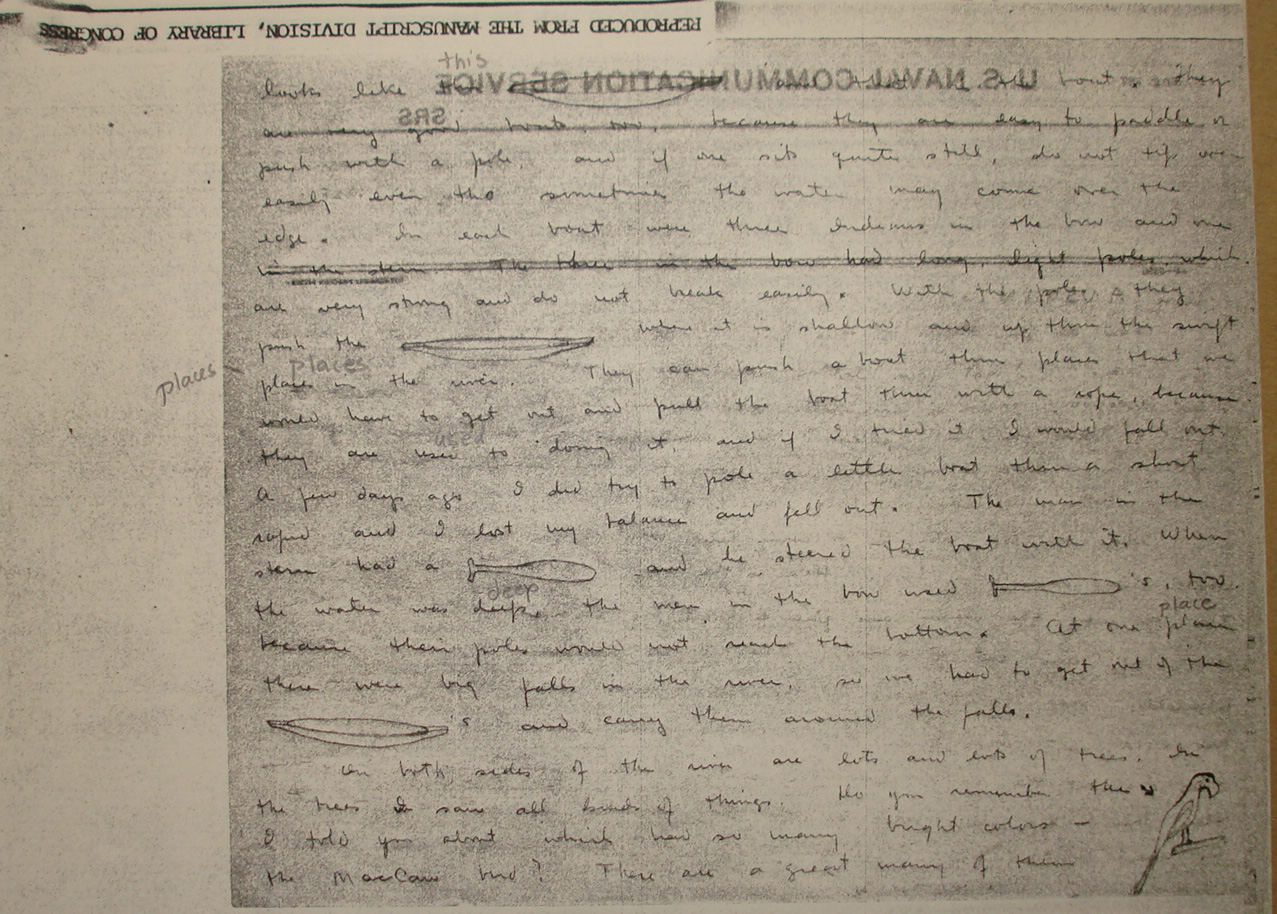 REPRODUCED FROM THE MANUSCRIPT DIVISION, LIBRARY OF CONGRESS
U.S. NAVAL COMMUNICATION SERVICE
SRS
this
looks like and that is the boat. They
are very good boats, too, because they are easy to paddle or
push with a pole, and if one sits quite still, do not tip over
easily even tho sometimes the water may come over the
edge. In each boat were three Indians in the bow and one
in the stern. The three in the bow had long, light poles, which
are very strong and do not break easily. With the poles they
push the when it is shallow and up thru the swift
places places
places in the river. They can push a boat thru places that we
would have to get out and pull the boat thru with a rope, because
used
they are used to doing it, and if I tried it I would fall out.
A few days ago I did try to pole a little boat thru a short
rapid and I lost my balance and fell out. The man in the
stern had a and he steered the boat with it. When
deep
the water was deep, the men in the bow used 's, too,
place
because their poles would not reach the bottom. At one place
there were big falls in the river, so we had to get out of the
's and carry them around the falls.
On both sides of the river are lots and lots of trees. In
the trees I saw all kinds of things. Do you remember the
I told you about which had so many bright colors —
the MacCaw bird? There are a great many of them